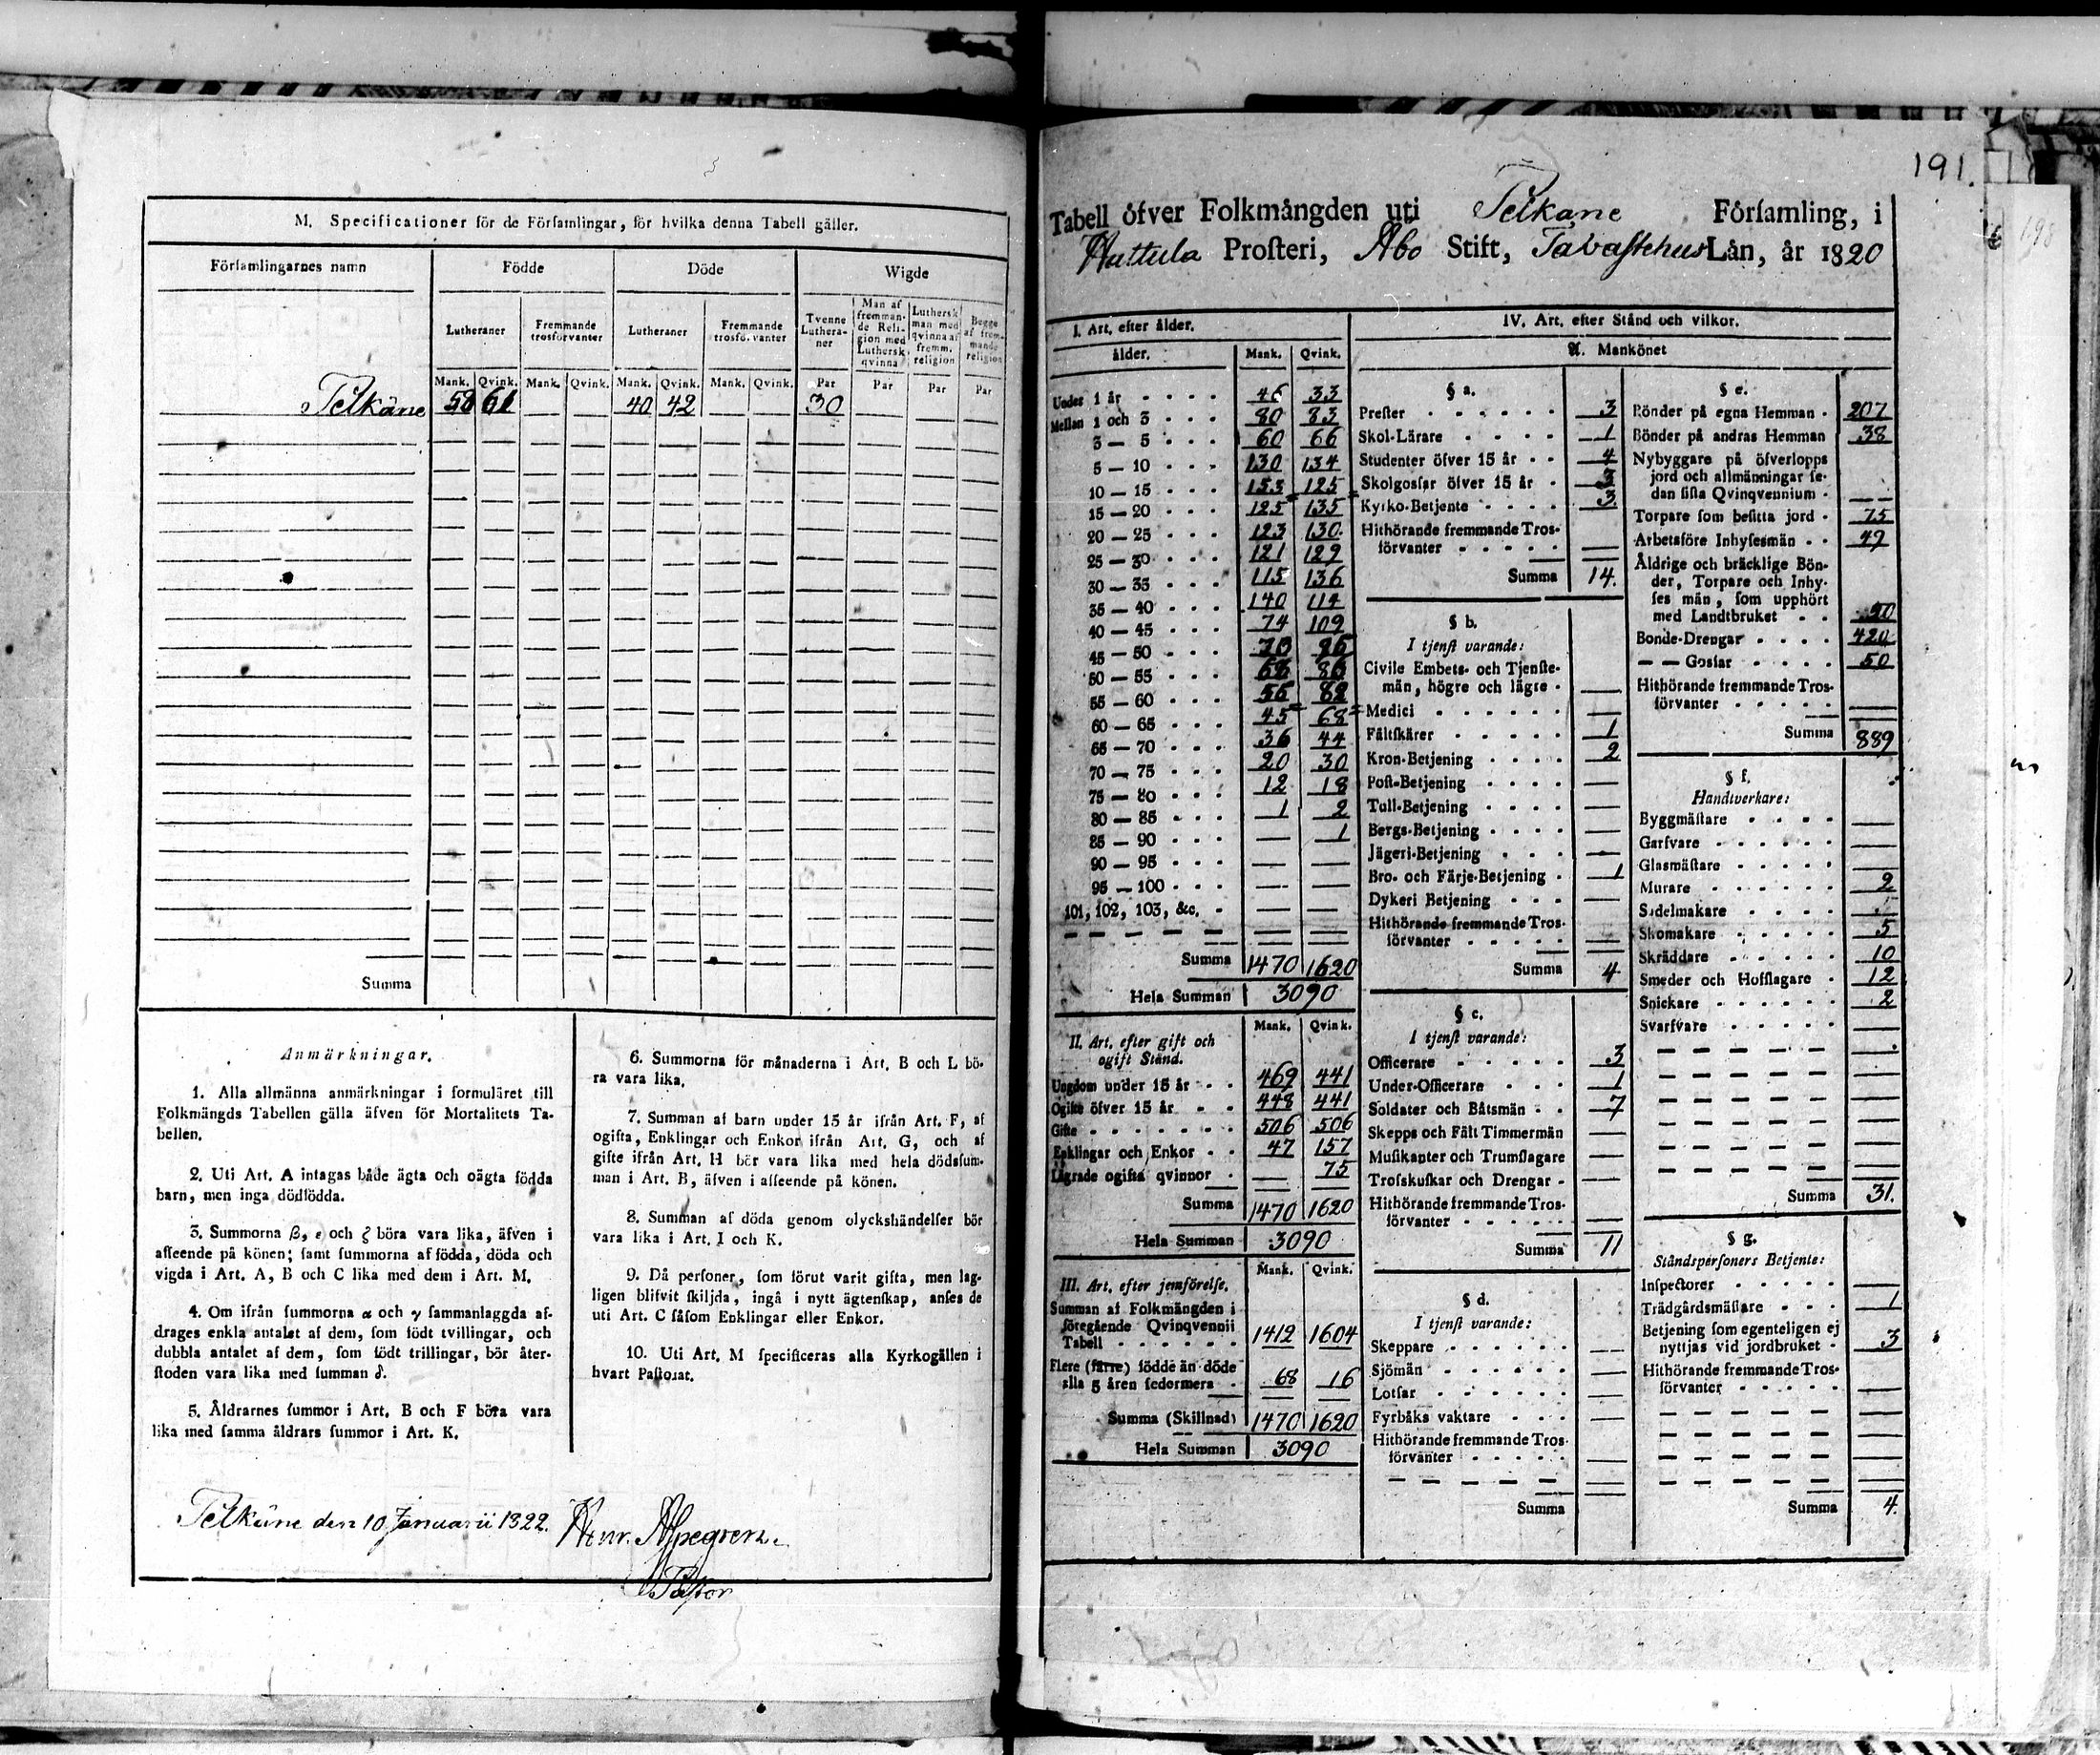 M. Specificationer för de Förſamlingar, för hvilka denna Tabell gäller.
Förſamlingarnes namn Födde Döde Wigde
Lutheraner Fremmande trosförvanter Lutheraner Fremmande trosförvanter Tvenne Lutheraner Man af fremmande Religion med Luthersk qvinna Luthersk man med qvinna af fremm. religion Begge af fremmande religion
Mank. Qvink. Mank. Qvink. Mank. Qvink. Mank. Qvink. Par Par Par Par
Pelkäne 58 61 — — 40 42 — — 30
Summa
Anmärkningar.
1. Alla allmänna anmärkningar i formuläret till
Folkmängds Tabellen gälla äfven för Mortalitets Ta-
bellen.
2. Uti Art. A intagas både ägta och oägta födda
barn, men inga dödfödda.
3. Summorna β, ε och ζ böra vara lika, äfven i
afſeende på könen; ſamt ſummorna af födda, döda och
vigda i Art. A, B och C lika med dem i Art. M.
4. Om ifrån ſummorna α och γ ſammanlaggda af-
drages enkla antalet af dem, ſom födt tvillingar, och
dubbla antalet af dem, ſom födt trillingar, bör åter-
ſtoden vara lika med ſumman δ.
5. Åldrarnes ſummor i Art. B och F böra vara
lika med ſamma åldrars ſummor i Art. K.
6. Summorna för månaderna i Art. B och L bö-
ra vara lika.
7. Summan af barn under 15 år ifrån Art. F, af
ogifta, Enklingar och Enkor ifrån Art. G, och af
gifte ifrån Art. H bör vara lika med hela dödsſum-
man i Art. B, äfven i afſeende på könen.
8. Summan af döda genom olyckshändelſer bör
vara lika i Art. I och K.
9. Då perſoner, ſom förut varit gifta, men lag-
ligen blifvit ſkiljda, ingå i nytt ägtenſkap, anſes de
uti Art. C ſåſom Enklingar eller Enkor.
10. Uti Art. M ſpecificeras alla Kyrkogällen i
hvart Paſtorat.
Pelkäne den 10 Januarii 1822. Henr. Alpegren.
Pastor
191.
Tabell öfver Folkmängden uti Pelkäne Förſamling, i
Hattula Proſteri, Åbo Stift, Tavastehus Län, år 1820
I. Art. efter ålder.
ålder. Mank. Qvink.
Under 1 år 46 33
Mellan 1 och 3 80 83
3 — 5 60 66
5 — 10 130 134
10 — 15 153 125
15 — 20 125 135
20 — 25 123 130
25 — 30 121 129
30 — 35 115 136
35 — 40 140 114
40 — 45 74 109
45 — 50 70 95
50 — 55 68 86
55 — 60 56 82
60 — 65 45 68
65 — 70 36 44
70 — 75 20 30
75 — 80 12 18
80 — 85 1 2
85 — 90 — 1
90 — 95 — —
95 — 100 — —
101, 102, 103, &c. — —
Summa 1470 1620
Hela Summan 3090
Mank. Qvink.
II. Art. efter gift och
ogift Stånd.
Ungdom under 15 år 469 441
Ogifte öfver 15 år 448 441
Gifte 506 506
Enklingar och Enkor 47 157
Lägrade ogifta qvinnor — 75
Summa 1470 1620
Hela Summan 3090
Mank. Qvink.
III. Art. efter jemförelſe.
Summan af Folkmängden i
föregående Qvinqvennii
Tabell 1412 1604
Flere (färre) födde än döde
alla 5 åren ſedermera 68 16
Summa (Skillnad) 1470 1620
Hela Summan 3090
IV. Art. efter Stånd och vilkor.
A. Mankönet
§ a.
Preſter 3
Skol-Lärare 1
Studenter öfver 15 år 4
Skolgosſar öfver 15 år 3
Kyrko-Betjente 3
Hithörande fremmande Tros-
förvanter —
Summa 14.
§ b.
I tjenſt varande:
Civile Embets- och Tjenſte-
män, högre och lägre —
Medici —
Fältſkärer 1
Kron-Betjening 2
Poſt-Betjening —
Tull-Betjening —
Bergs-Betjening —
Jägeri-Betjening —
Bro- och Färje-Betjening 1
Dykeri Betjening —
Hithörande fremmande Tros-
förvanter —
Summa 4
§ c.
I tjenſt varande:
Officerare 3
Under-Officerare 1
Soldater och Båtsmän 7
Skepps och Fält Timmermän —
Muſikanter och Trumſlagare —
Troſskuſkar och Drengar —
Hithörande fremmande Tros-
förvanter —
Summa 11
§ d.
I tjenſt varande:
Skeppare —
Sjömän —
Lotſar —
Fyrbåks vaktare —
Hithörande fremmande Tros-
förvanter —
Summa
§ e.
Bönder på egna Hemman 207
Bönder på andras Hemman 38
Nybyggare på öfverlopps
jord och allmänningar ſe-
dan ſiſta Qvinqvennium —
Torpare ſom beſitta jord 75
Arbetsföre Inhyſesmän 49
Åldrige och bräcklige Bön-
der, Torpare och Inhy-
ſes män, ſom upphört
med Landtbruket 50
Bonde-Drengar 420
— — Gosſar 50
Hithörande fremmande Tros-
förvanter —
Summa 889
§ f.
Handtverkare:
Byggmäſtare —
Garfvare —
Glasmäſtare —
Murare 2
Sadelmakare
Skomakare 5
Skräddare 10
Smeder och Hofſlagare 12
Snickare 2
Svarfvare —
Summa 31.
§ g.
Ståndsperſoners Betjente:
Inſpectorer —
Trädgårdsmäſtare 1
Betjening ſom egenteligen ej
nyttjas vid jordbruket 3
Hithörande fremmande Tros-
förvanter —
Summa 4.
198